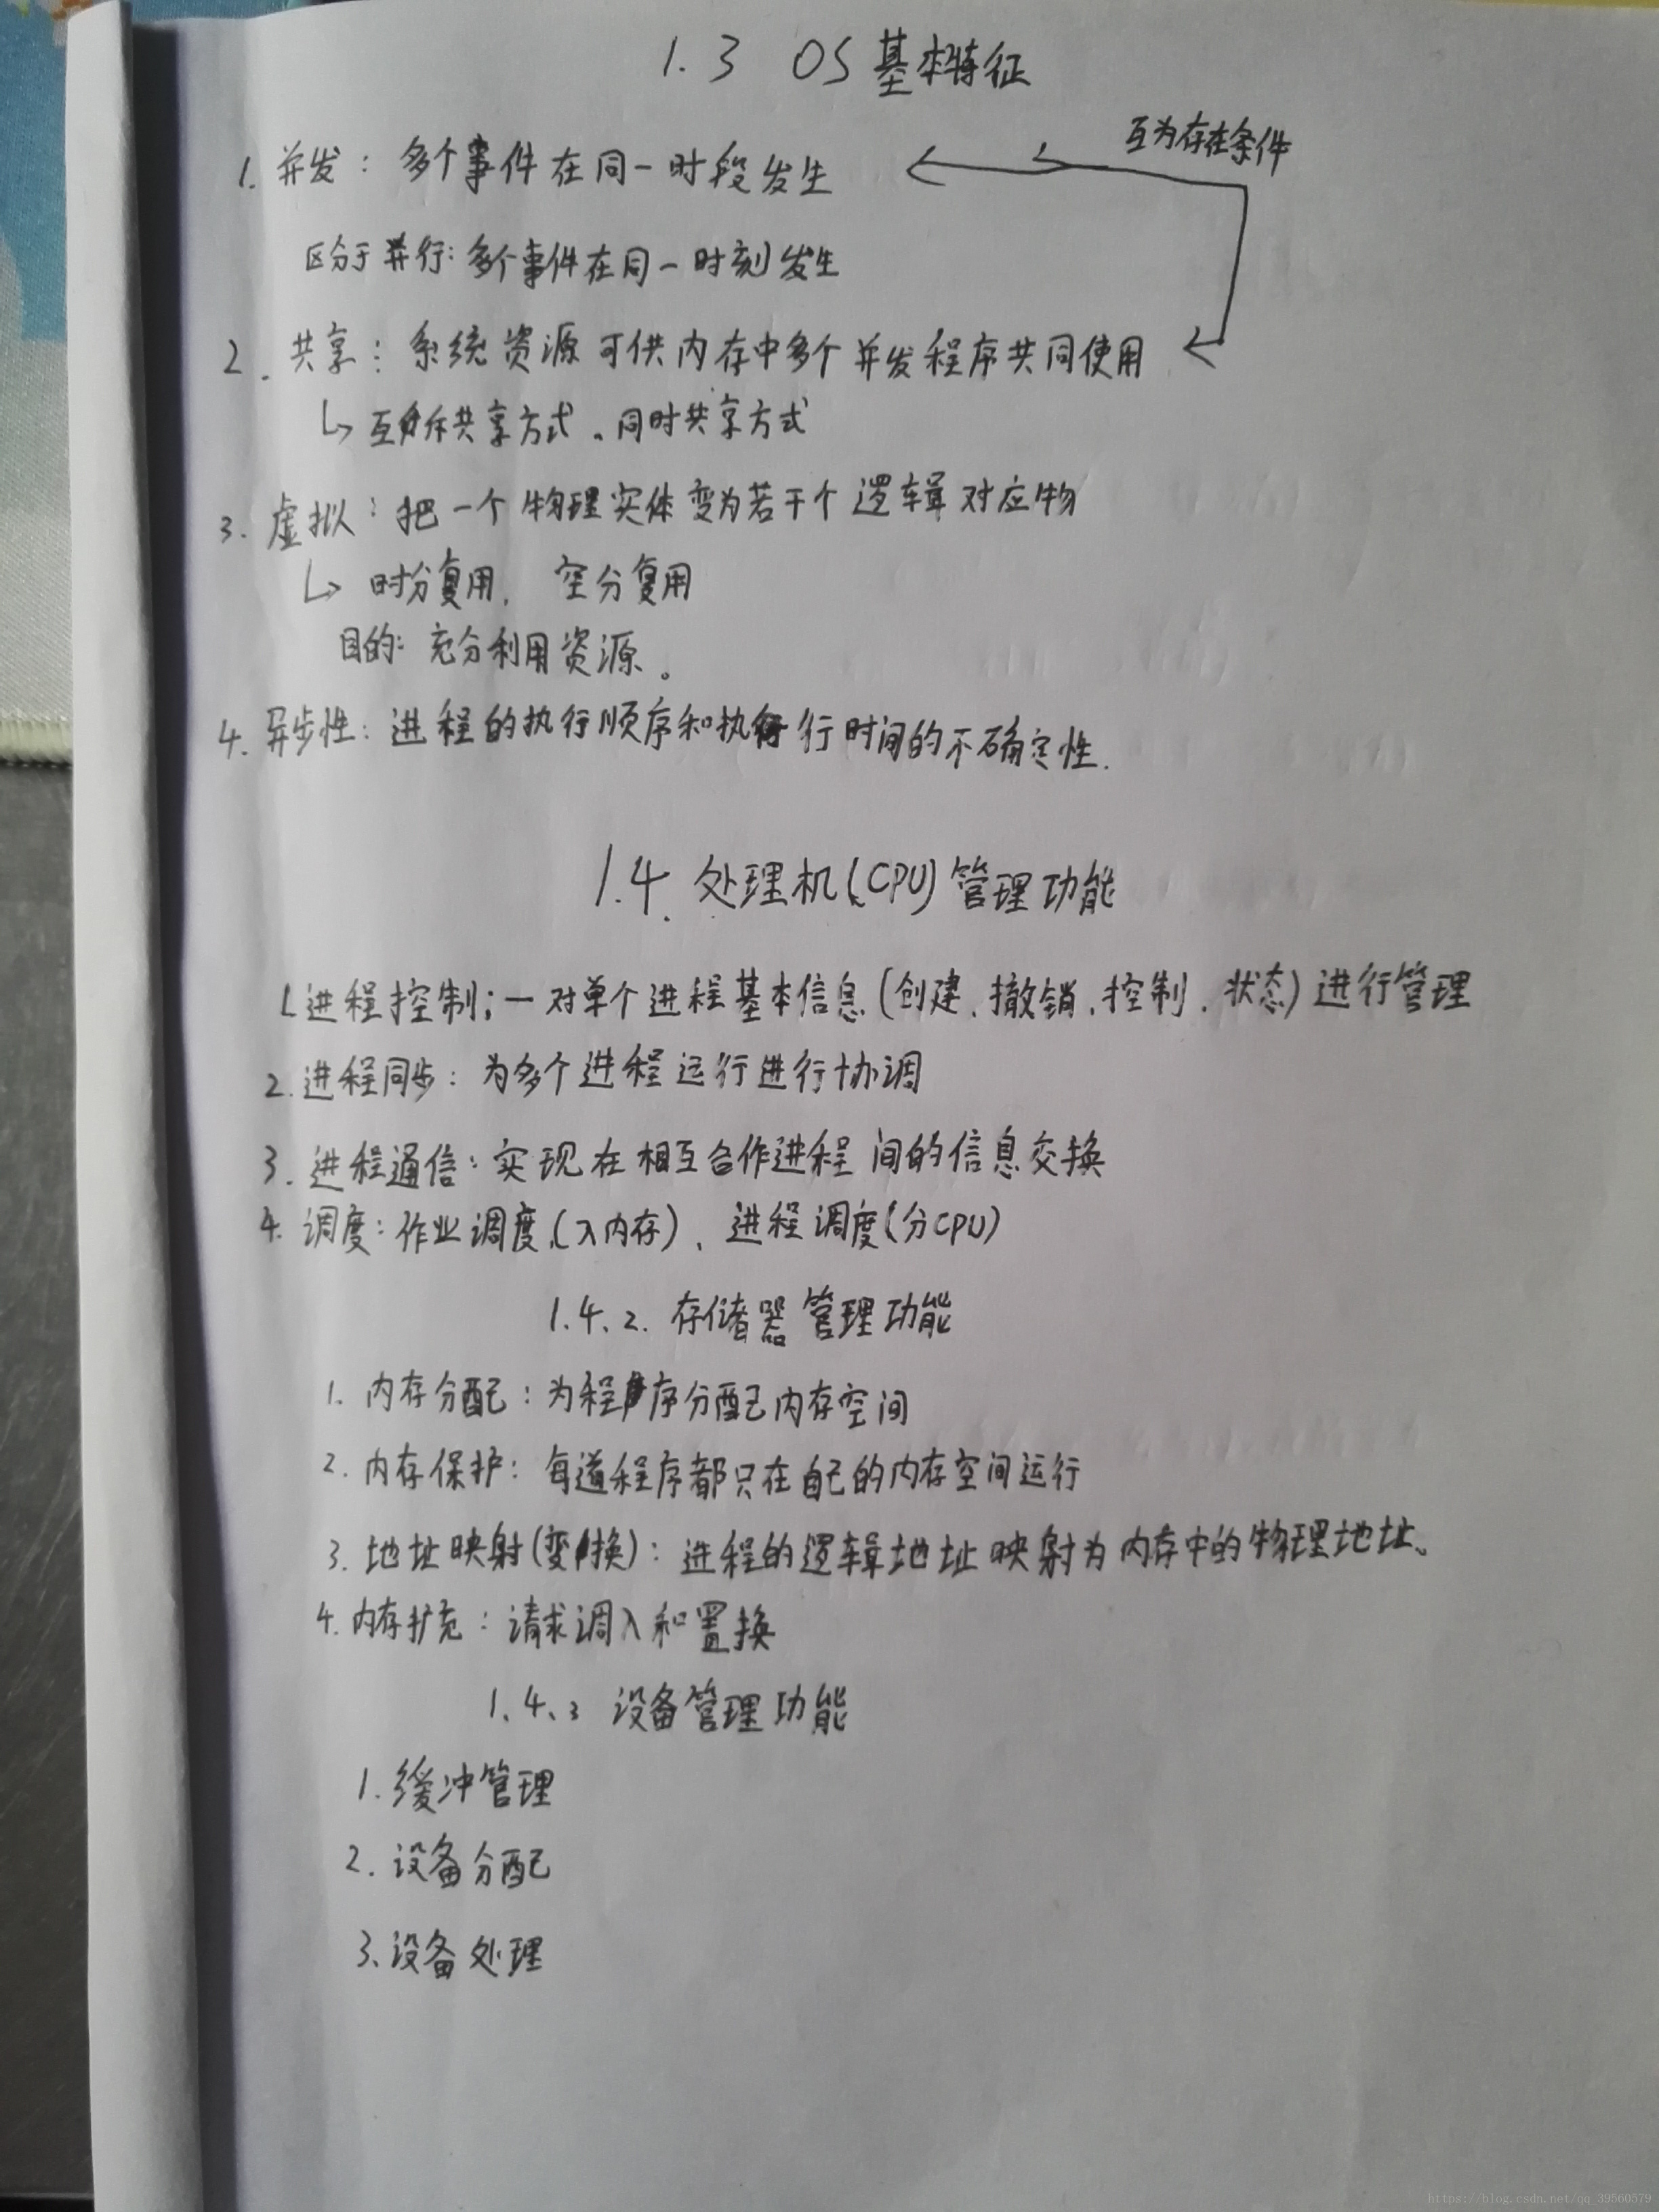 1.3 OS基本特征
互为存在条件
1. 并发：多个事件在同一时段发生
区分于并行：多个事件在同一时刻发生
2. 共享：系统资源可供内存中多个并发程序共同使用
↳ 互斥共享方式、同时共享方式
3. 虚拟：把一个物理实体变为若干个逻辑对应物
↳ 时分复用, 空分复用
目的：充分利用资源。
4. 异步性：进程的执行顺序和执行时间的不确定性.
1.4. 处理机(CPU)管理功能
1.进程控制；一对单个进程基本信息(创建、撤销、控制、状态)进行管理
2.进程同步：为多个进程运行进行协调
3. 进程通信：实现在相互合作进程间的信息交换
4. 调度：作业调度(入内存)、进程调度(分CPU)
1.4.2. 存储器管理功能
1. 内存分配：为程序分配内存空间
2. 内存保护：每道程序都只在自己的内存空间运行
3. 地址映射(变换)：进程的逻辑地址映射为内存中的物理地址。
4. 内存扩充：请求调入和置换
1.4.3 设备管理功能
1. 缓冲管理
2. 设备分配
3、设备处理
https://blog.csdn.net/qq_39560579